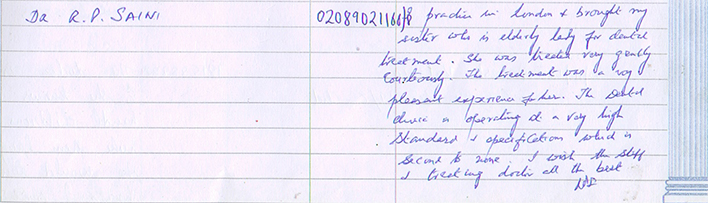 Dr R.P. SAINI
02089021166/8
I practice in London & brought my
sister who is elderly lady for dental
treatment. She was treated very gently
Courteously. The treatment was a very
pleasant experience for her. The Dental
clinic is operating at a very high
Standard & specifications which is
Second to none I wish the staff
& treating doctor all the best